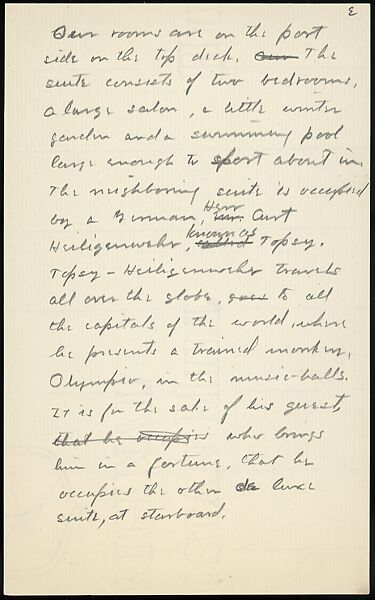 3
Our rooms are on the port
side on the top deck. Our The
suite consists of two bedrooms,
a large salon, a little winter
garden and a swimming pool
large enough to sport about in.
The neighboring suite is occupied
by a German, Mr. Herr Curt
Heiligenwehr, called known as Topsy.
Topsy-Heiligenwehr travels
all over the globe, goes to all
the capitals of the world, where
he presents a trained monkey,
Olympio, in the music-halls.
It is for the sake of his guest,
that he occupies who brings
him in a fortune, that he
occupies the other de luxe
suite, at starboard.